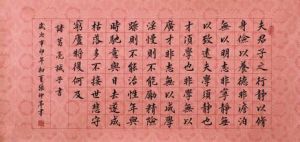 夫君子之行靜以修
身儉以養德非澹泊
無以明志非寧靜無
以致遠夫學須靜也
才須學也非學無以
廣才非志無以成學
淫慢則不能勵精險
躁則不能治性年與
時馳意與日去遂成
枯落多不接世悲守
窮廬將復何及
諸葛亮誡子書